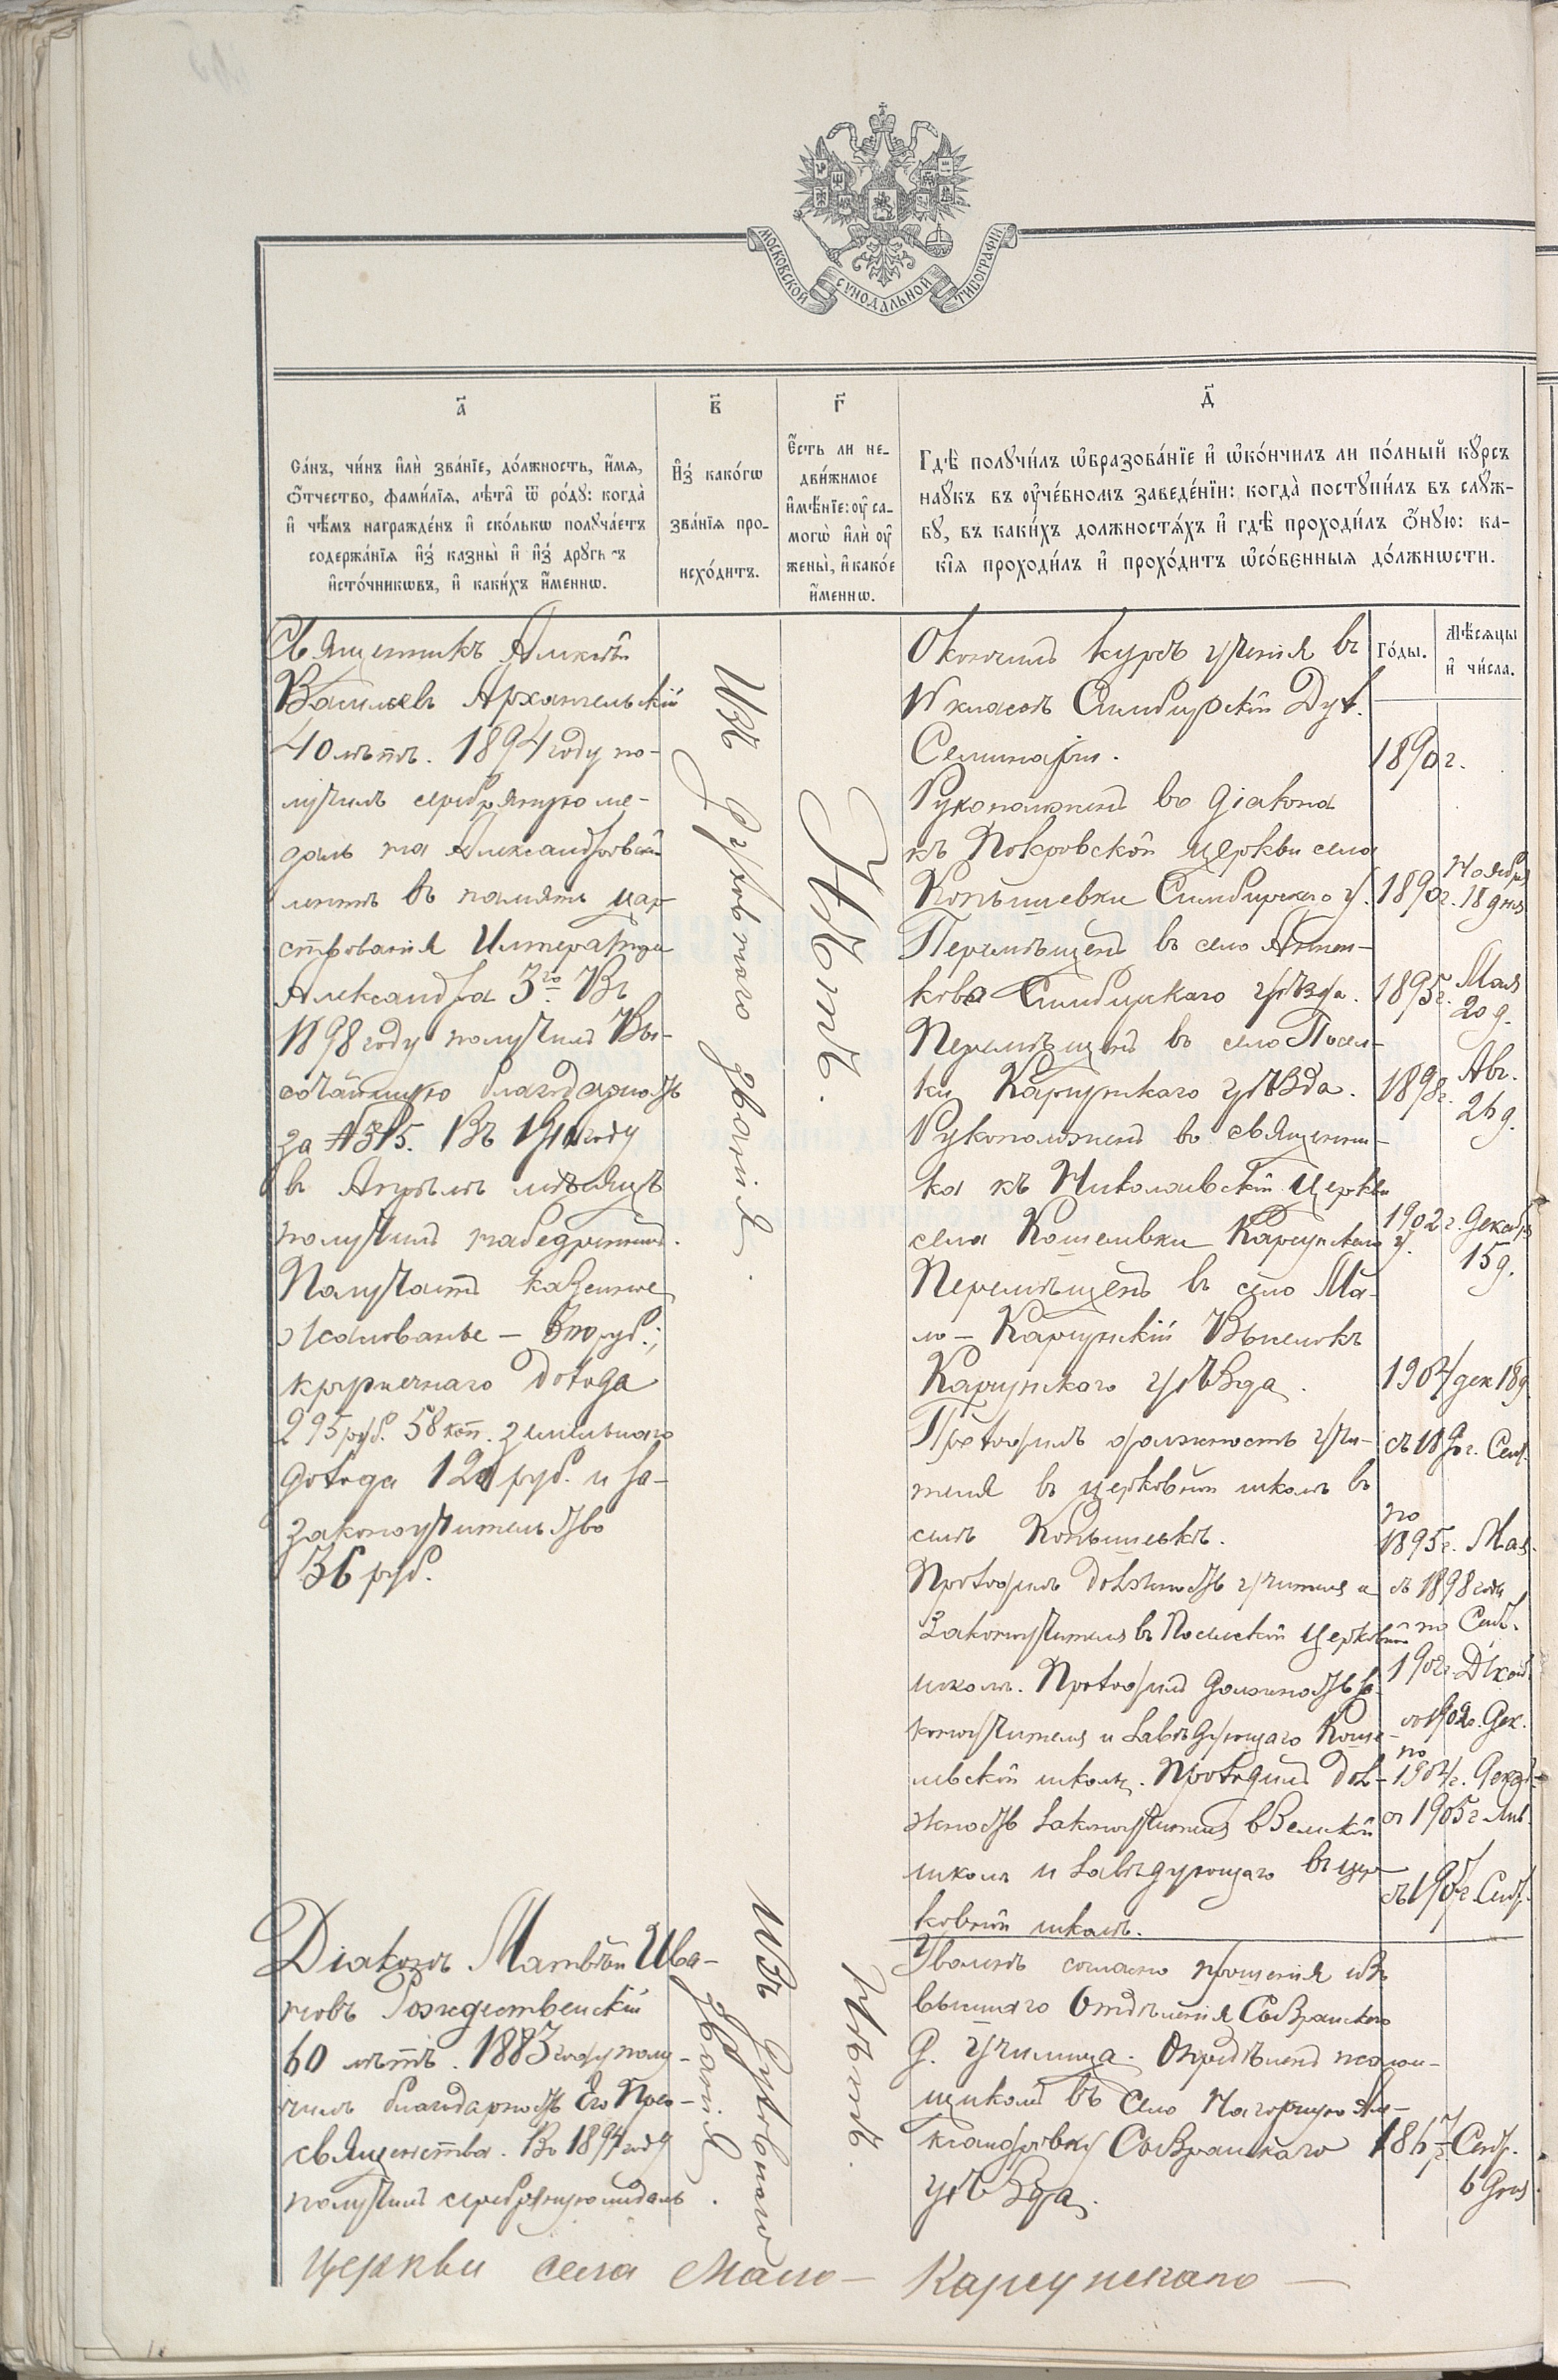 МОСКОВСКОЙ СѴНОДАЛЬНОЙ ТИПОГРАФІИ
а҃
Са́нъ, чи́нъ и҆лѝ зва́нїе, до́лжность, и҆́мѧ,
ѻ҆́тчество, фами́лїѧ, лѣ́та ѿ ро́дꙋ: когда̀
и҆ чѣ́мъ награжде́нъ и҆ ско́лькѡ полꙋча́етъ
содержа́нїѧ и҆з̾ казны̀ и҆ и҆з̾ дрꙋги́хъ
и҆сто́чникѡвъ, и҆ каки́хъ и҆́меннѡ.
в҃
И҆з̾ како́гѡ
зва́нїѧ про-
исхо́дитъ.
г҃
Є҆́сть ли не-
дви́жимое
и҆мѣ́нїе: ᲂу҆ са-
могѡ̀ и҆лѝ ᲂу҆
жены̀, и҆ како́е
и҆́меннѡ.
д҃
Гдѣ̀ полꙋчи́лъ ѡ҆бразова́нїе и҆ ѡ҆ко́нчилъ ли по́лный кꙋ́рсъ
наꙋ́къ въ ᲂу҆че́бномъ заведе́нїи: когда̀ постꙋпи́лъ въ слꙋ́ж-
бꙋ, въ каки́хъ должностѧ́хъ и҆ гдѣ̀ проходи́лъ ѻ҆́нꙋю: ка-
кі́ѧ проходи́лъ и҆ прохо́дитъ ѡ҆со́бенныѧ до́лжнѡсти.
Го́ды.
Мѣ́сѧцы
и҆ чи́сла.
Священникъ Алексѣй
Васильевъ Архангельскій
40 лѣтъ. 1894 году по-
лучилъ серебряную ме-
даль на Александровской
лентѣ въ память цар-
ствованія Императора
Александра 3го. Въ
1898 году получилъ Вы-
сочайшую благодарность
за
въ Апрѣлѣ мѣсяцѣ
получилъ набедренникъ.
Получаетъ казенное
жалованье – 300 руб.;
кружечнаго дохода
295 руб. 58 коп. земельнаго
дохода 120 руб. и за-
законоучительство
36 руб.
Изъ духовнаго званія.
Нѣтъ.
Окончилъ курсъ ученія въ
IV классѣ Симбирской Дух.
Семинаріи. 1890 г.
Рукоположенъ во діакона
къ Покровской церкви села
Копышевки Симбирскаго у. 1890 г. Ноября 18 дня
Перемѣщенъ въ село Аттен-
ково Симбирскаго уѣзда. 1895 г. Мая 20 д.
Перемѣщенъ въ село Посел-
ки Карсунскаго уѣзда. 1898 г. Авг. 26 д.
Рукоположенъ во священни-
ка къ Николаевской церкви
села Кошелевки Карсунскаго у. 1902 г. Декабр. 15 д.
Перемѣщенъ въ село Ма-
ло-Карсунскій Выселокъ
Карсунскаго уѣзда. 1904 дек 18 д.
Проходилъ должность учи- съ 1890 г. Сент.
теля въ церковной школѣ въ
селѣ Копышевкѣ. по 1895 г. Мая.
Проходилъ должность учителя и съ 1898 года
Законоучителя въ Посельской церковной по Сент.
школѣ. Проходилъ должность за- 1902 г. Декаб.
коноучителя и завѣдующаго Коше- съ 1902 г. Дек.
левской школы. Проходилъ дол- по 1904 г. Декаб.
жность законоучителя въ Земской съ 1905 г. Янв.
школѣ и завѣдующаго въ цер-
ковной школѣ. съ 1907 г. Сент.
Діаконъ Матвѣй Ива-
новъ Рождественскій
60 лѣтъ. 1883 году полу-
чилъ благодарность Его Прео-
священства. Въ 1897 году
получилъ серебряную медаль.
Изъ духовнаго
званія
Нѣтъ.
Уволенъ согласно прошенія изъ
высшаго Отдѣленія Сызранскаго
Д. Училища. Опредѣленъ псалом-
щикомъ въ село Нагорную Але-
ксандровку Сызранскаго 1867 г. Сент.
уѣзда. 6 дня
Церкви села Мало – Карсунскаго –